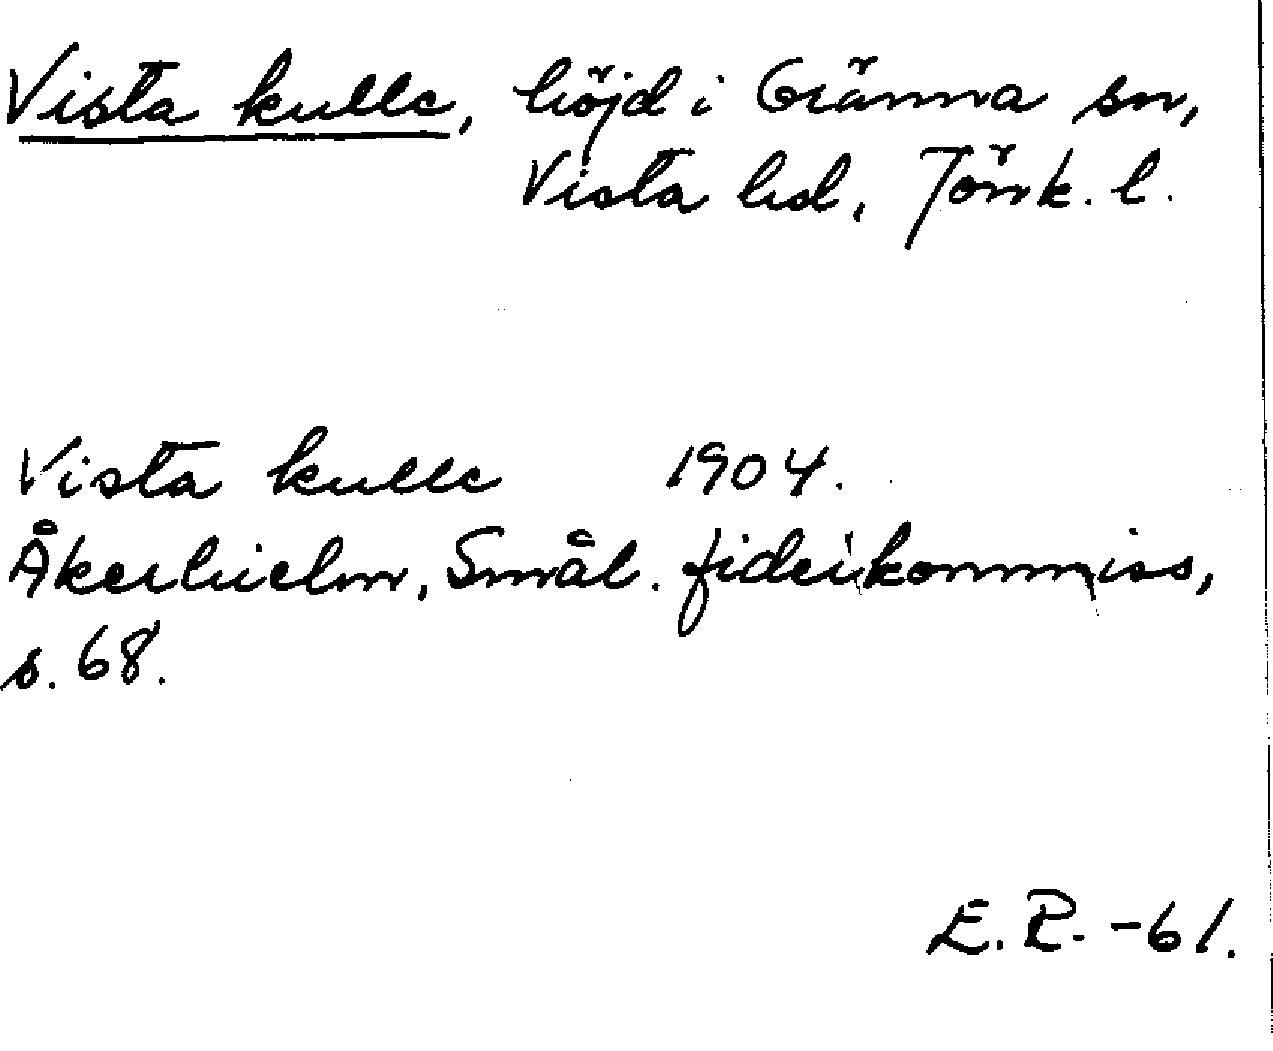 Vista kulle, höjd i Gränna sn,
Vista hd, Jönk. l.
Vista kulle 1904.
Åkerhielm, Smål. fideikommiss,
s. 68.
E. R. -61.